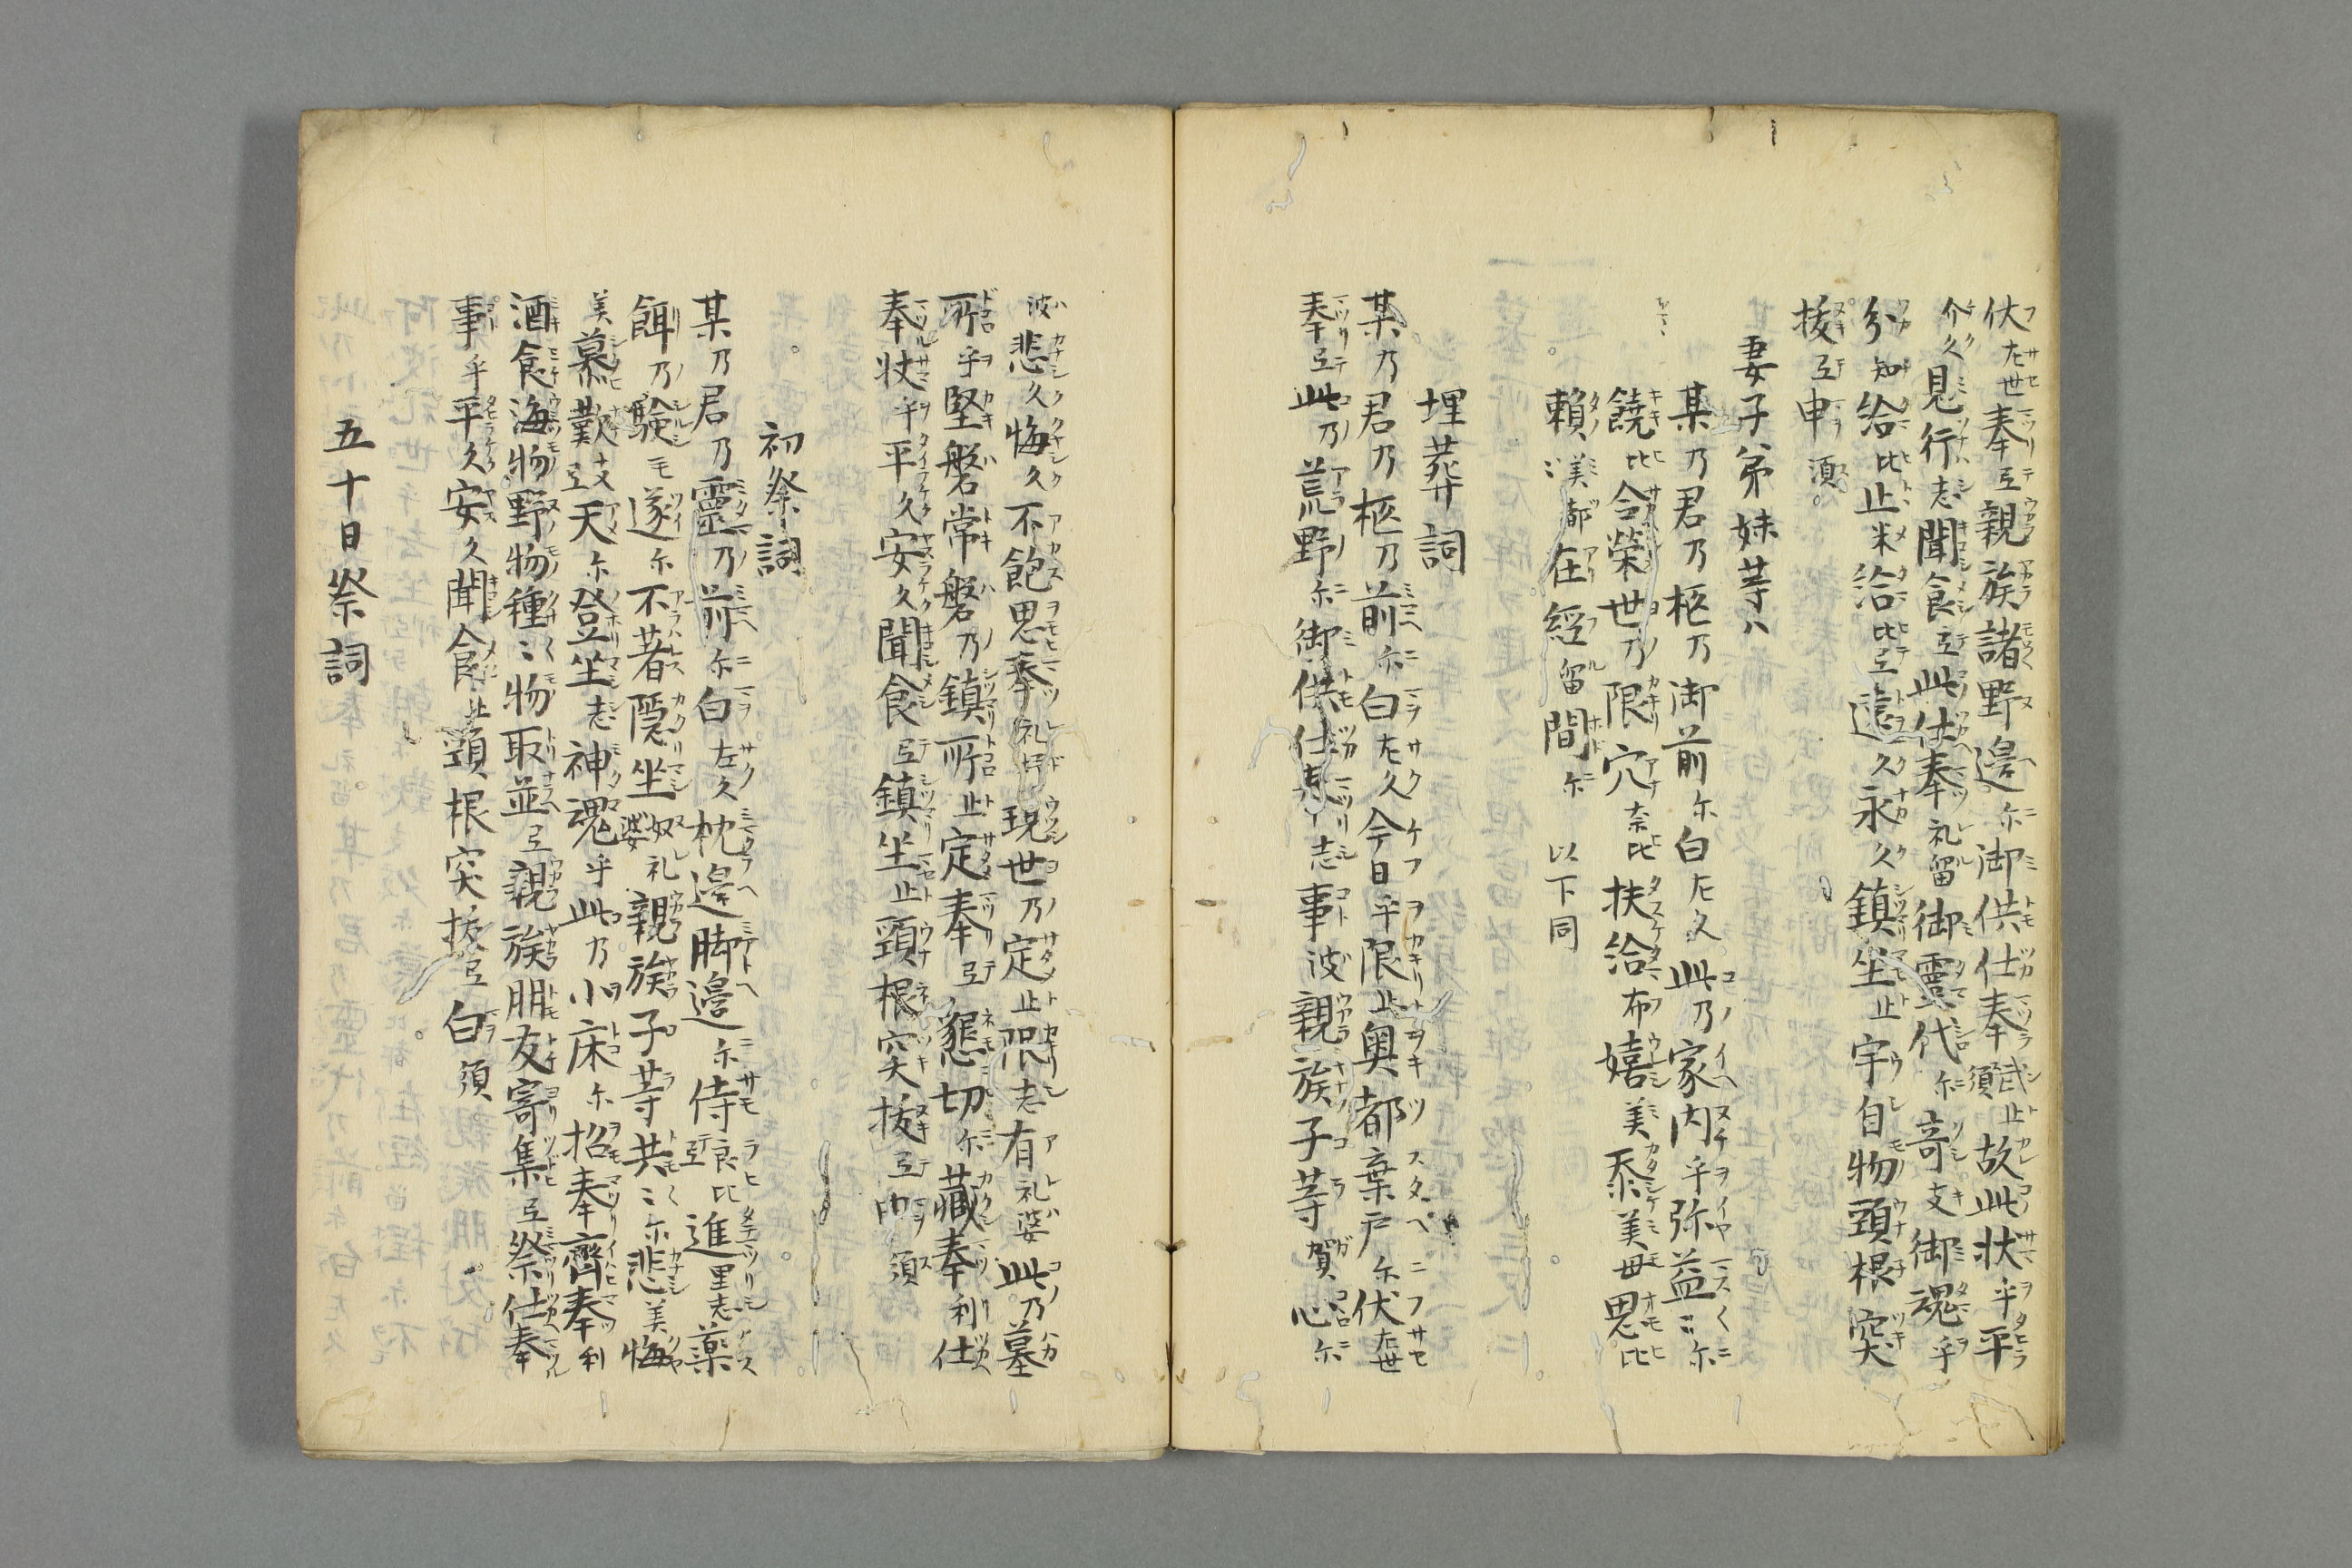 伏左世奉弖親族諸野邊尓御供仕奉良武止須故此状乎平
介久見行志聞食弖此仕奉礼留御霊代尓寄支御魂乎
分知給比止米給比弖遠久永久鎮坐止宇自物頸根突
抜弖申須
妻子弟妹等ハ
某乃君乃柩乃御前尓白左久此乃家内乎弥益〻尓
饒比令榮世乃限穴奈比扶給布嬉美忝美毋思比
賴〻美都在經留間尓 以下同
埋葬詞
某乃君乃柩乃前尓白左久今日乎限止奥都棄戸尓伏左世
奉弖此乃荒野尓御供仕奉志事波親族子等賀心尓
波悲久悔久不飽思奉礼杼現世乃定止限志有礼婆此乃墓
所乎堅磐常磐乃鎮所止定奉弖懇切尓藏奉利仕
奉状乎平久安久聞食弖鎮坐止頸根突抜弖申須
初祭詞
某乃君乃靈乃前尓白左久枕邊脚邊尓侍良比弖進里志薬
餌乃驗毛遂尓不著隠坐奴礼婆親族子等共〻尓悲美悔
美慕歎支弖天尓登坐志神魂乎此乃小床尓招奉齊奉利
酒食海物野物種〻物取並弖親族朋友寄集弖祭仕奉
事乎平久安久聞食止頸根突抜弖白須
五十日祭詞